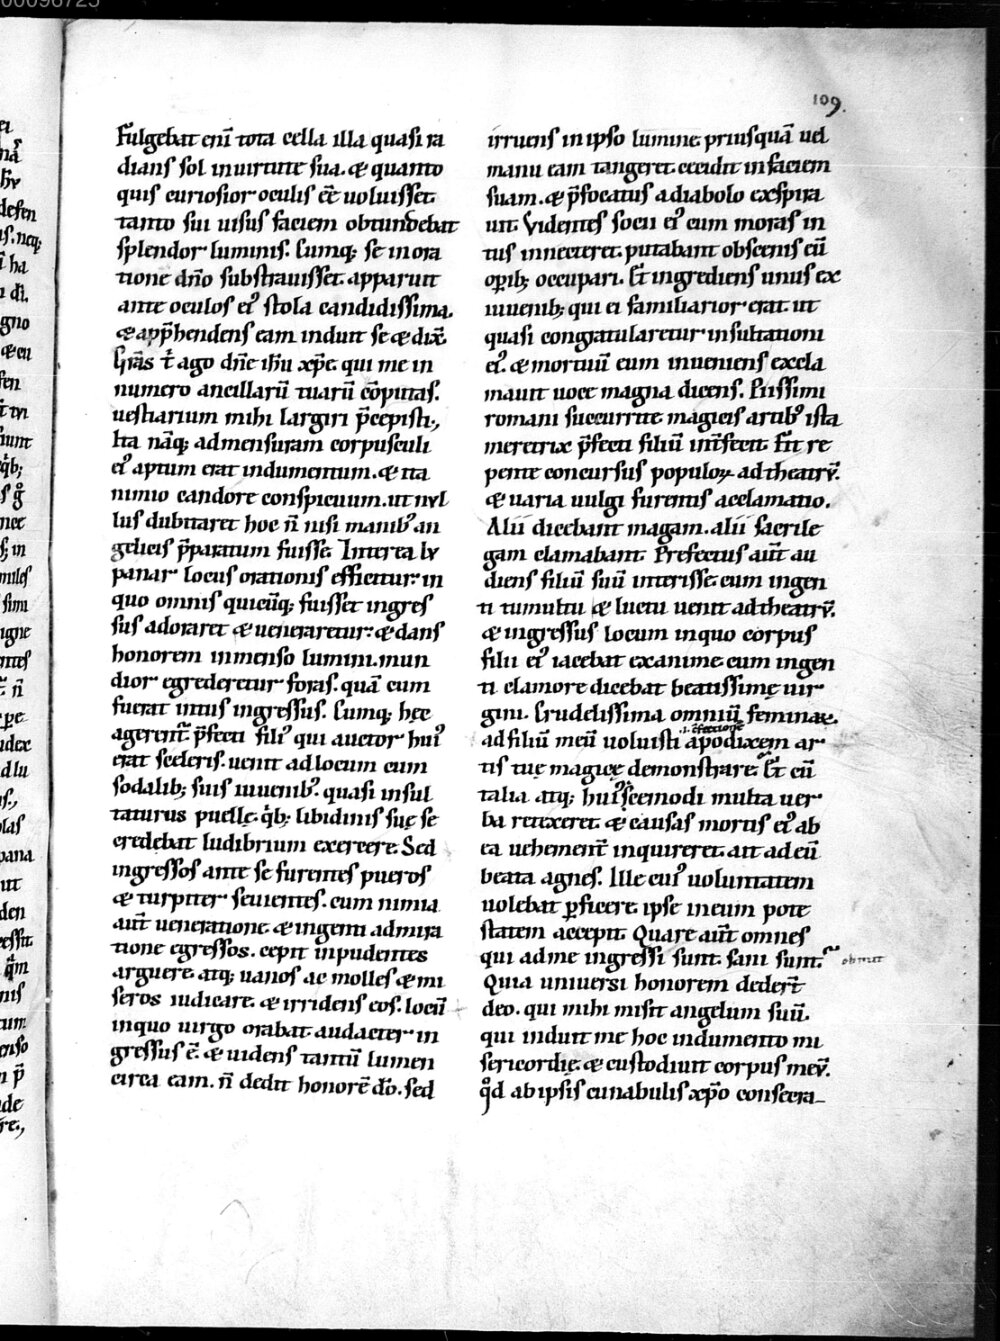 109.
Fulgebat eni̅ tota cella illa quasi ra
dians sol in uirtute sua. & quanto
quis curiosior oculis e̅e̅ uoluisset.
tanto sui uisus faciem obtundebat
splendor luminis. Cumq; se in ora
tione dn̅o substrauisset. apparuit
ante oculos ei᾽ stola candidissima.
& app̅hendens eam induit se & dix̅.
Gr̅as t̅ ago dn̅e ih̅u xp̅e. qui me in
numero ancillaru̅ tuaru̅ co̅putas.
uestiarium mihi largiri p̅cepisti.,
Ita na̅q; ad mensuram corpusculi
ei᾽ aptum erat indumentum. & ita
nimio candore conspicuum. ut nul
lus dubitaret hoc n̅ nisi manib᾽ an
gelicis p̅paratum fuisse. Interea lu
panar locus orationis efficitur. in
quo omnis quicu̅q; fuisset ingres
sus adoraret & ueneraretur. & dans
honorem inmenso lumini. mun
dior egrederetur foras. qua̅ cum
fuerat intus ingressus. Cumq; hec
agerent᷑ p̅fecti fili᾽ qui auctor hui᾽
erat sceleris. uenit ad locum cum
sodalib; suis iuuenib᾽. quasi insul
taturus puellę. q̅b; libidinis suę se
credebat ludibrium exercere. Sed
ingressos ante se furentes pueros
& turpiter seuientes. cum nimia
aut̅ ueneratione & ingenti admira
tione egressos. cepit inpudentes
arguere. atq; uanos ac molles & mi
seros iudicare. & irridens eos. locu̅
in quo uirgo orabat audacter in
gressus e̅. & uidens tantu̅ lumen
circa eam. n̅ dedit honore̅ do̅. sed
irruens in ipso lumine. priusqua̅ uel
manu eam tangeret. cecidit in faciem
suam. & p̅focatus a diabolo exspira
uit. Videntes socii ei᾽ eum moras in
tus innecteret. putabant obscenis eu̅
op̅ib; occupari. Et ingrediens unus ex
iuuenib; qui ei familiarior erat. ut
quasi congratularetur insultationi
ei᾽. & mortuu̅ eum inueniens excla
mauit uoce magna dicens. Piissimi
romani succurrite. magicis artib᾽ ista
meretrix p̅fecti filiu̅ int̅fecit. Fit re
pente concursus populoꝝ ad theatru̅.
& uaria uulgi furentis acclamatio.
Alii dicebant magam. alii sacrile
gam clamabant. Prefectus aut̅ au
diens filiu̅ suu̅ interisse. cum ingen
ti tumultu & luctu uenit ad theatru̅.
& ingressus locum in quo corpus
filii ei᾽ iacebat exanime. cum ingen
ti clamore dicebat beatissimę uir
gini. Crudelissima omniu̅ feminaꝝ.
ad filiu̅ meu̅ uoluisti apodixem ar
tis tuę magicę demonstrare. Et cu̅
talia atq; hui᾽scemodi multa uer
ba retexeret. & causas mortis ei᾽ ab
ea uehement᷑ inquireret. ait ad eu̅
beata agnes. Ille cui᾽ uoluntatem
uolebat ꝑficere. ipse in eum pote
statem accepit. Quare aut̅ omnes
qui ad me ingressi sunt. sani sunt.
Quia uniuersi honorem dedert̅
deo. qui mihi misit angelum suu̅.
qui induit me hoc indumento mi
sericordię. & custodiuit corpus meu̅.
qd̅ ab ipsis cunabulis xp̅o consecra_